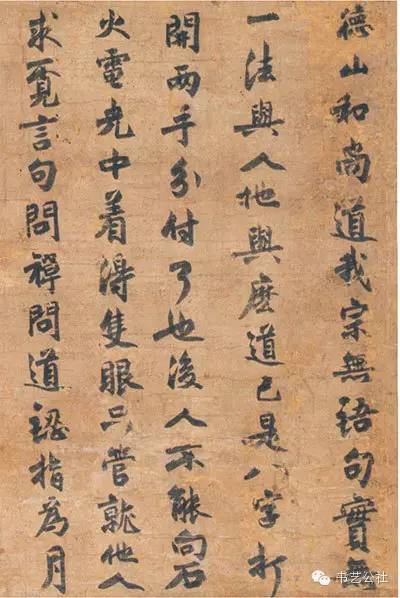 德山和尚道我宗無語句實無
一法與人他與麽道已是八字打
開兩手分付了也後人不能向石
火電光中着得隻眼只管就他人
求覓言句問禪問道認指為月
书艺公社